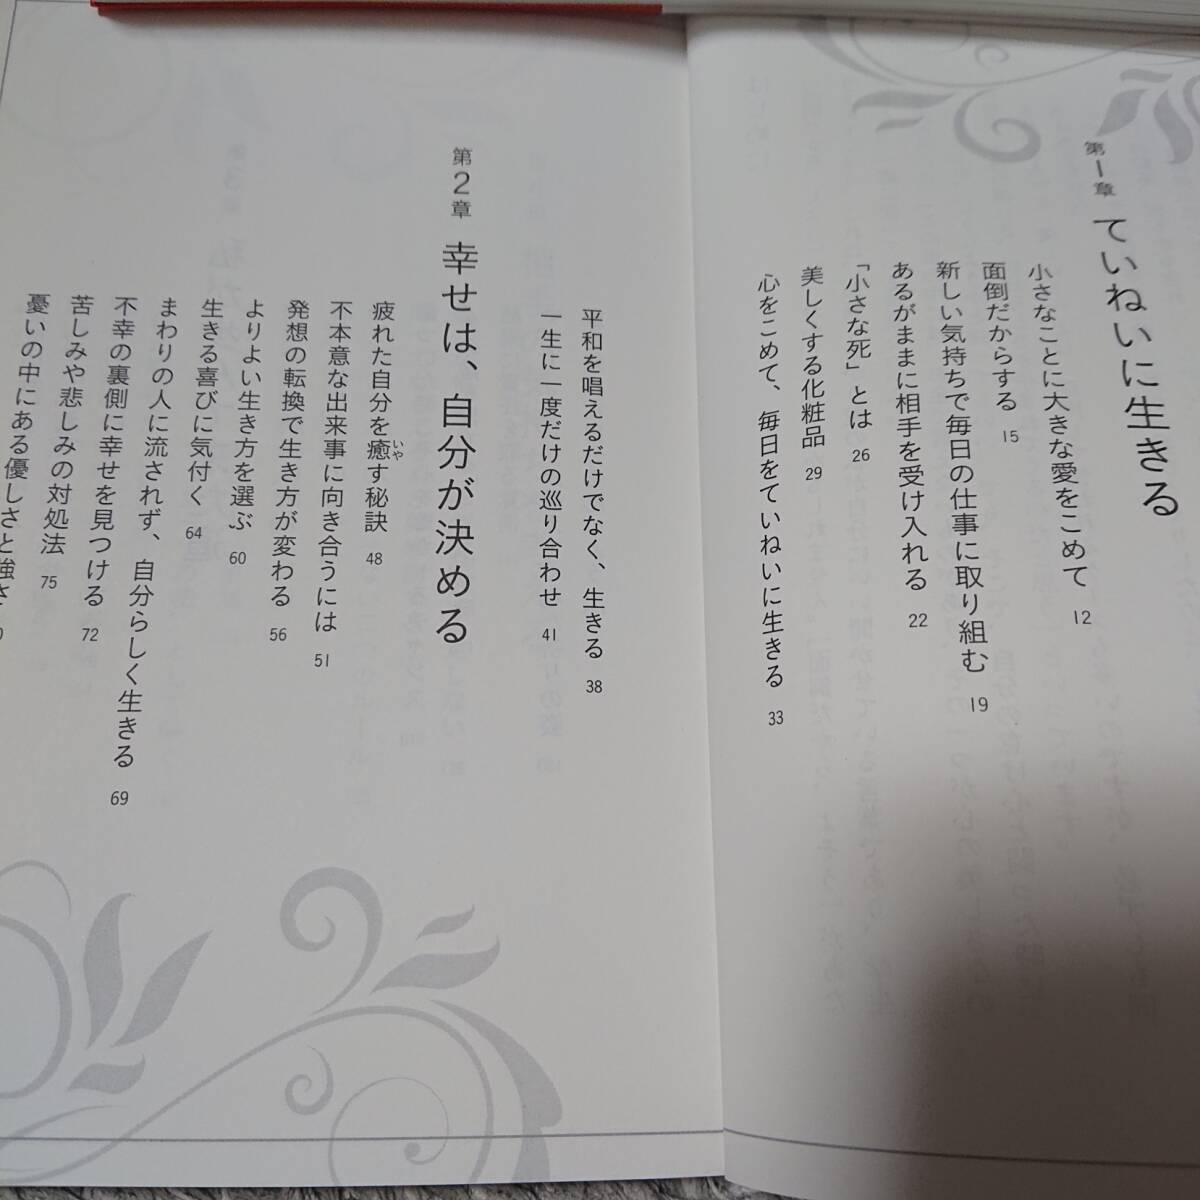 第1章 ていねいに生きる
小さなことに大きな愛をこめて 12
面倒だからする 15
新しい気持ちで毎日の仕事に取り組む 19
あるがままに相手を受け入れる 22
「小さな死」とは 26
美しくする化粧品 29
心をこめて、毎日をていねいに生きる 33
平和を唱えるだけでなく、生きる 38
一生に一度だけの巡り合わせ 41
第2章 幸せは、自分が決める
疲れた自分を癒す秘訣 48
いや
不本意な出来事に向き合うには 51
発想の転換で生き方が変わる 56
よりよい生き方を選ぶ 60
生きる喜びに気付く 64
まわりの人に流されず、自分らしく生きる 69
不幸の裏側に幸せを見つける 72
苦しみや悲しみの対処法 75
憂いの中にある優しさと強さ